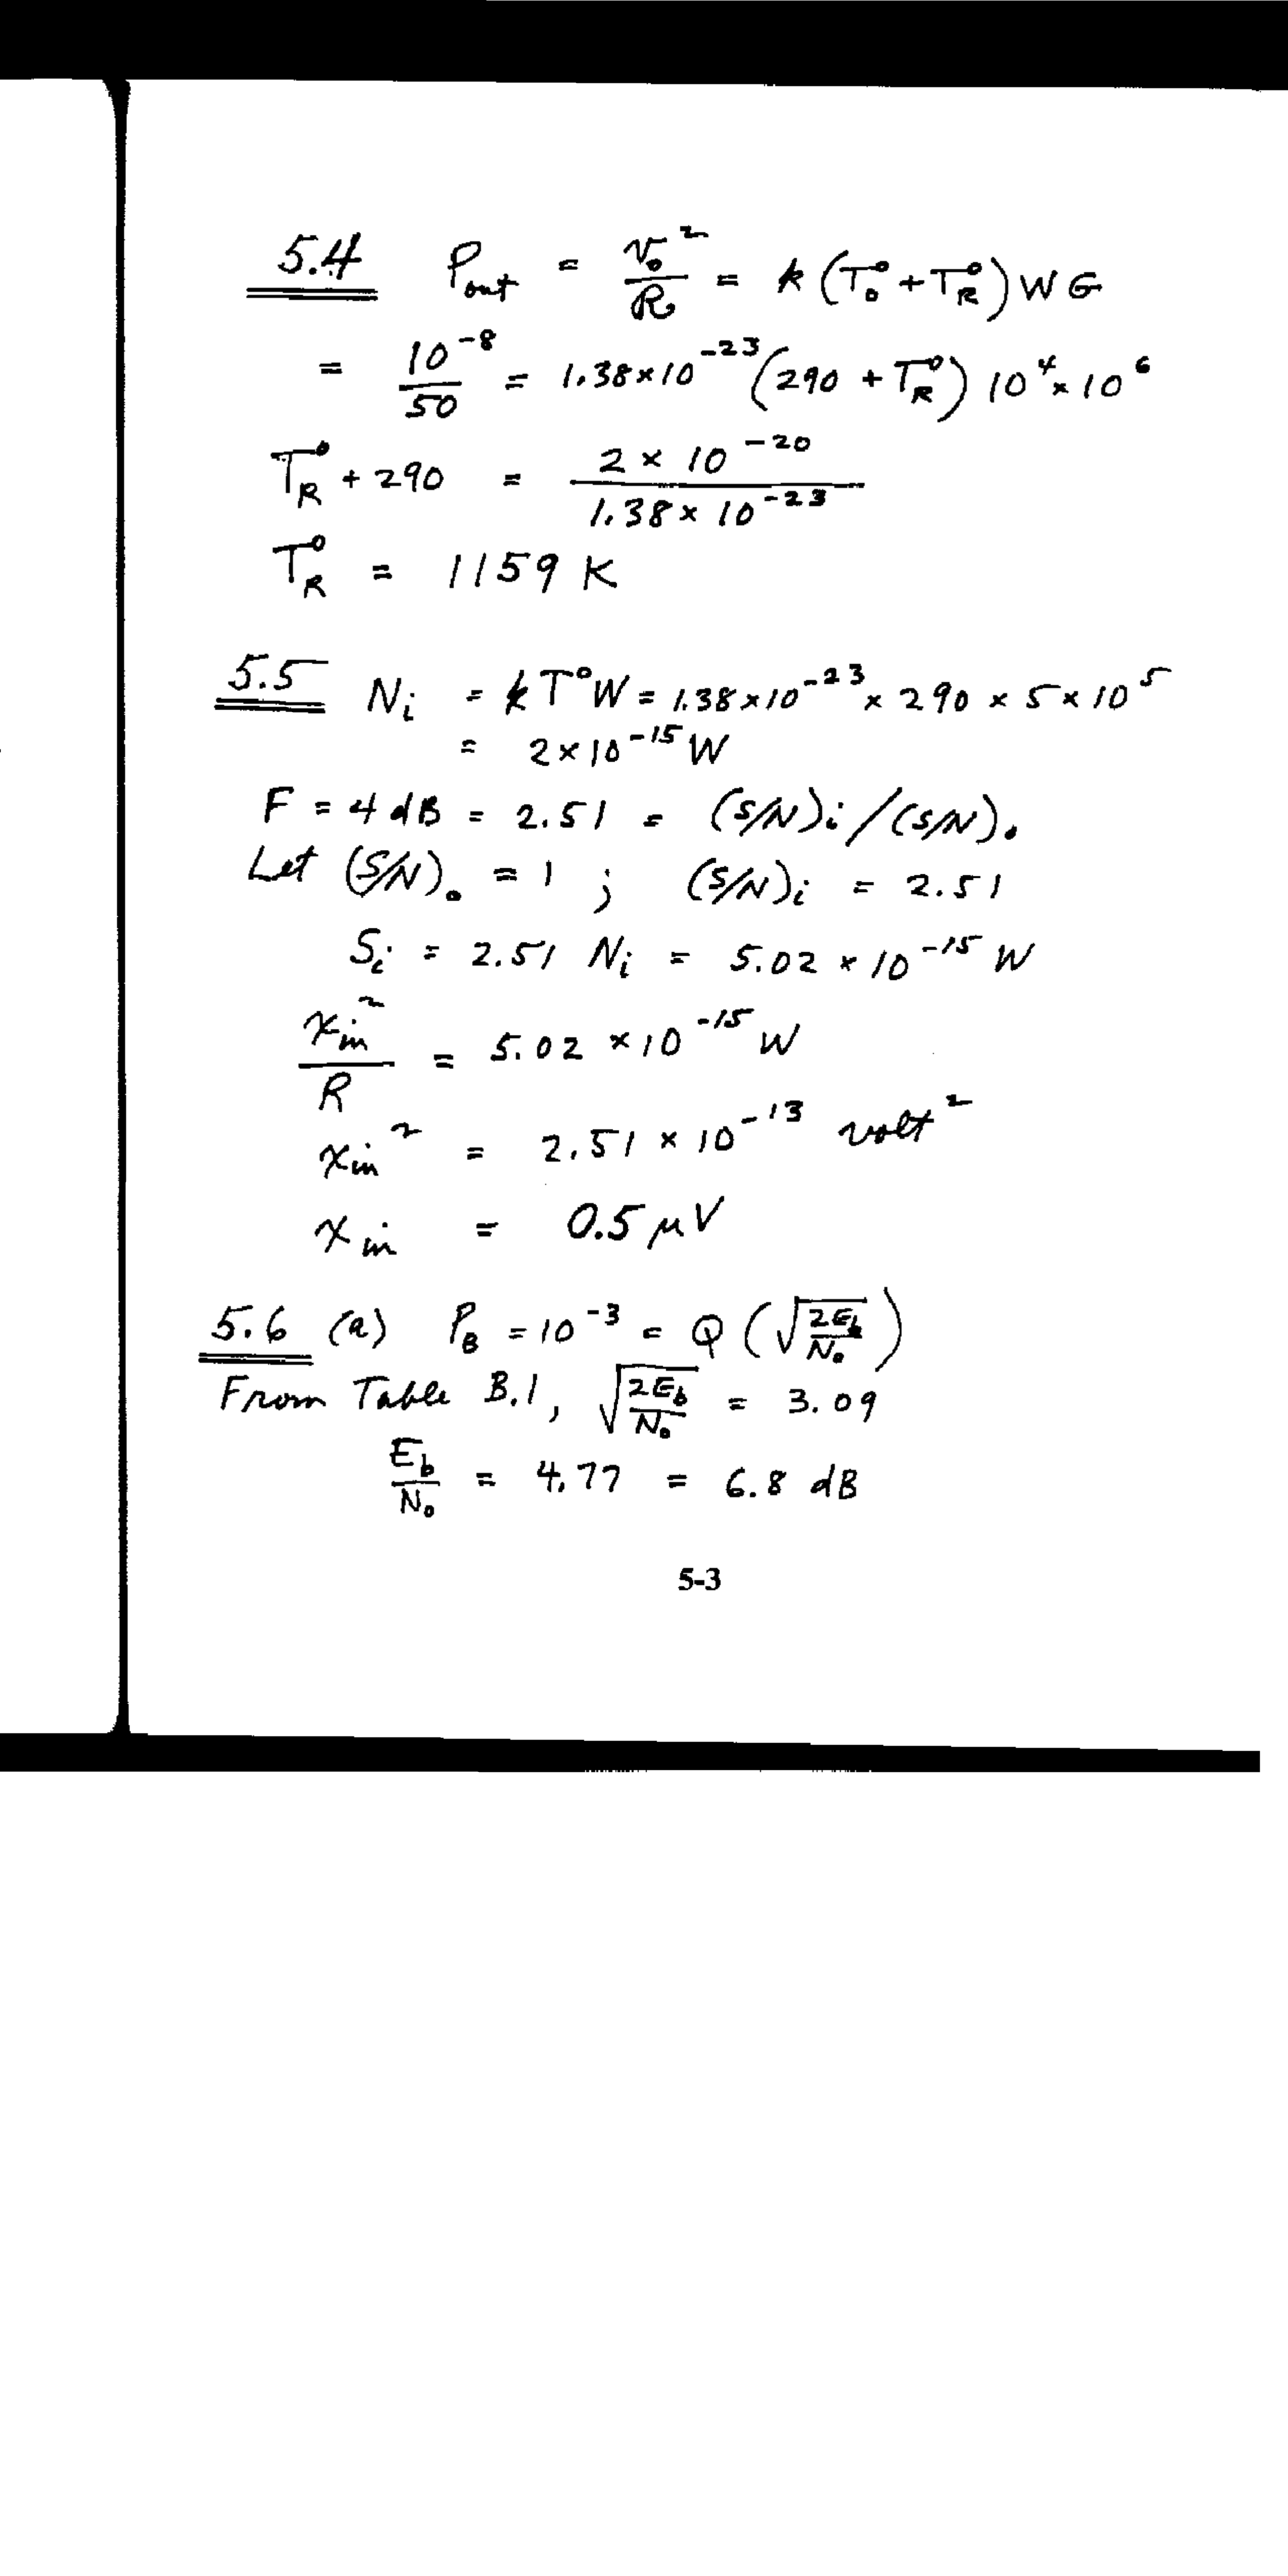 5.4 P_out = v_o^2 / R = k (T_o° + T_R°) W G
= 10^-8 / 50 = 1.38 × 10^-23 (290 + T_R°) 10^4 × 10^6
T_R° + 290 = 2 × 10^-20 / 1.38 × 10^-23
T_R° = 1159 K
5.5 N_i = k T° W = 1.38 × 10^-23 × 290 × 5 × 10^5
= 2 × 10^-15 W
F = 4 dB = 2.51 = (S/N)_i / (S/N)_o
Let (S/N)_o = 1 ; (S/N)_i = 2.51
S_i = 2.51 N_i = 5.02 × 10^-15 W
x_in^2 / R = 5.02 × 10^-15 W
x_in^2 = 2.51 × 10^-13 volt^2
x_in = 0.5 μV
5.6 (a) P_B = 10^-3 = Q (√(2E_b / N_o))
From Table B.1, √(2E_b / N_o) = 3.09
E_b / N_o = 4.77 = 6.8 dB
5-3